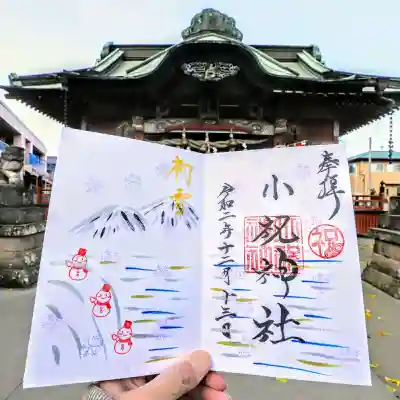 奉拝
小祝神社
令和二年十二月十三日
初雪